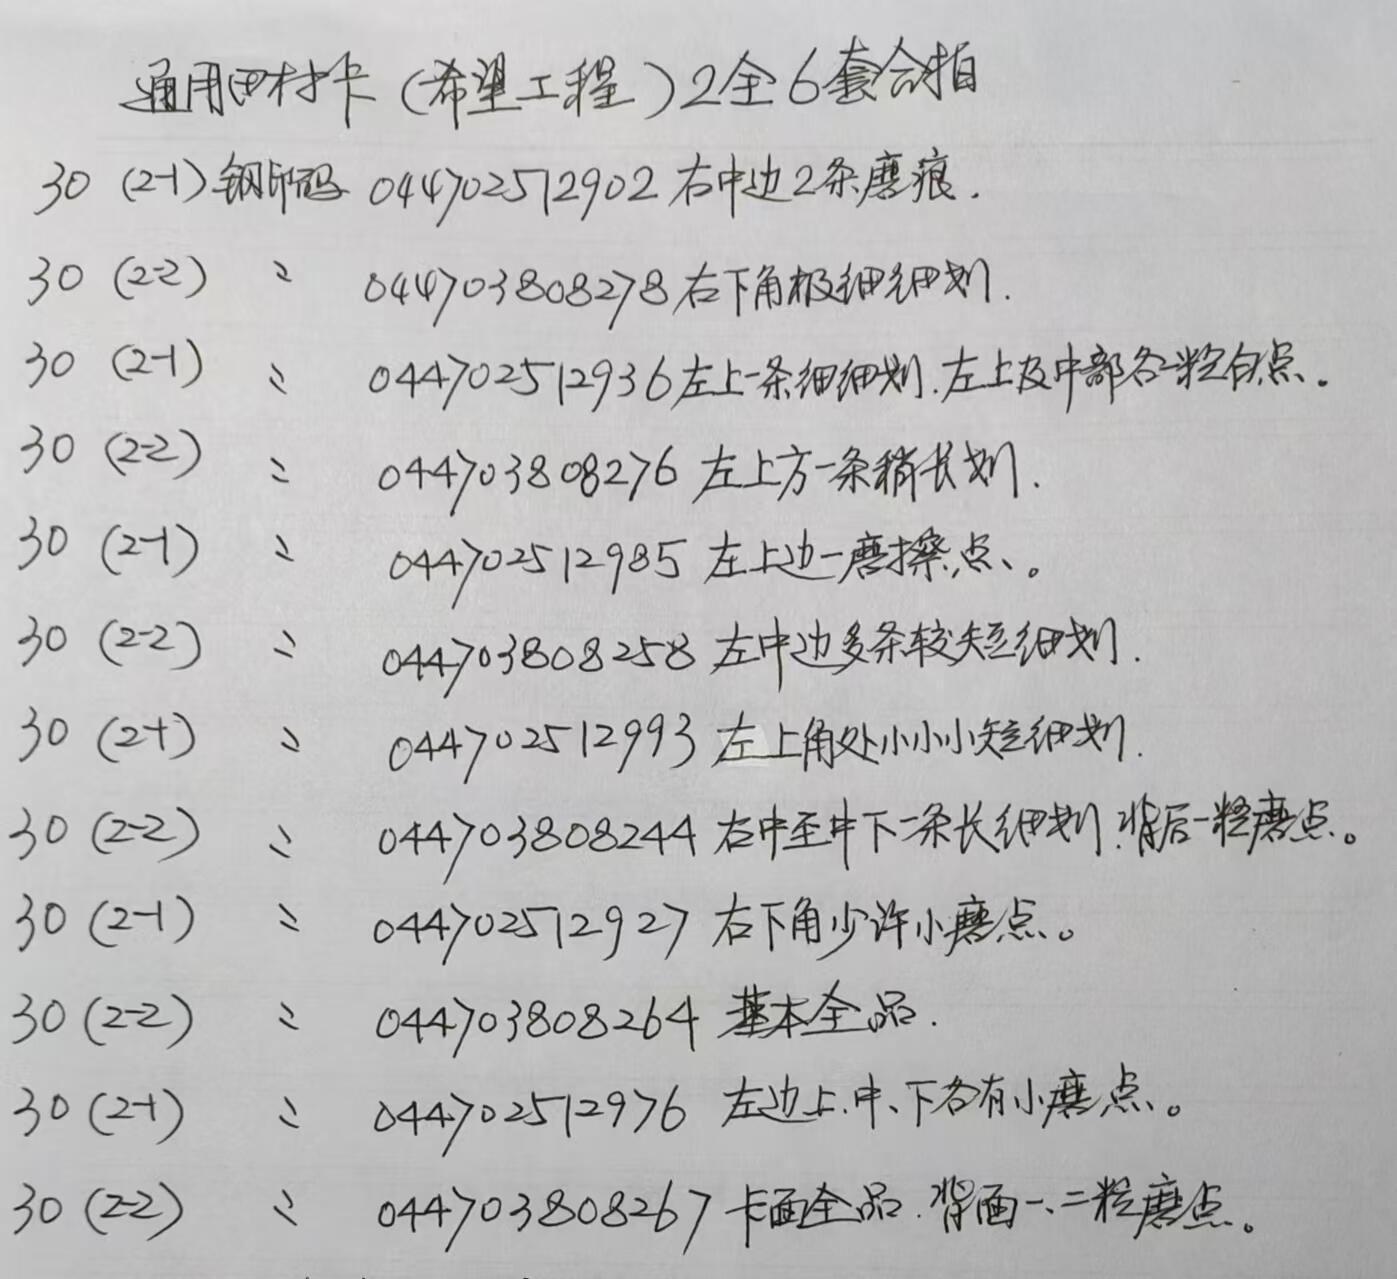 通用田村卡(希望工程)2全6套合拍
30 (2-1) 钢印码 044702512902 右中边2条磨痕.
30 (2-2) 〃 044703808278 右下角极细细划.
30 (2-1) 〃 044702512936 左上一条细细划.左上及中部各一粒白点。
30 (2-2) 〃 044703808276 左上方一条稍长划.
30 (2-1) 〃 044702512985 左上边一磨擦点、。
30 (2-2) 〃 044703808258 左中边多条较短细划.
30 (2-1) 〃 044702512993 左上角处小小小短细划.
30 (2-2) 〃 044703808244 右中至中下一条长细划.背后一粒磨点。
30 (2-1) 〃 044702512927 右下角少许小磨点。
30 (2-2) 〃 044703808264 基本全品.
30 (2-1) 〃 044702512976 左边上.中、下各有小磨点。
30 (2-2) 〃 044703808267 卡面全品.背面一、二粒磨点。